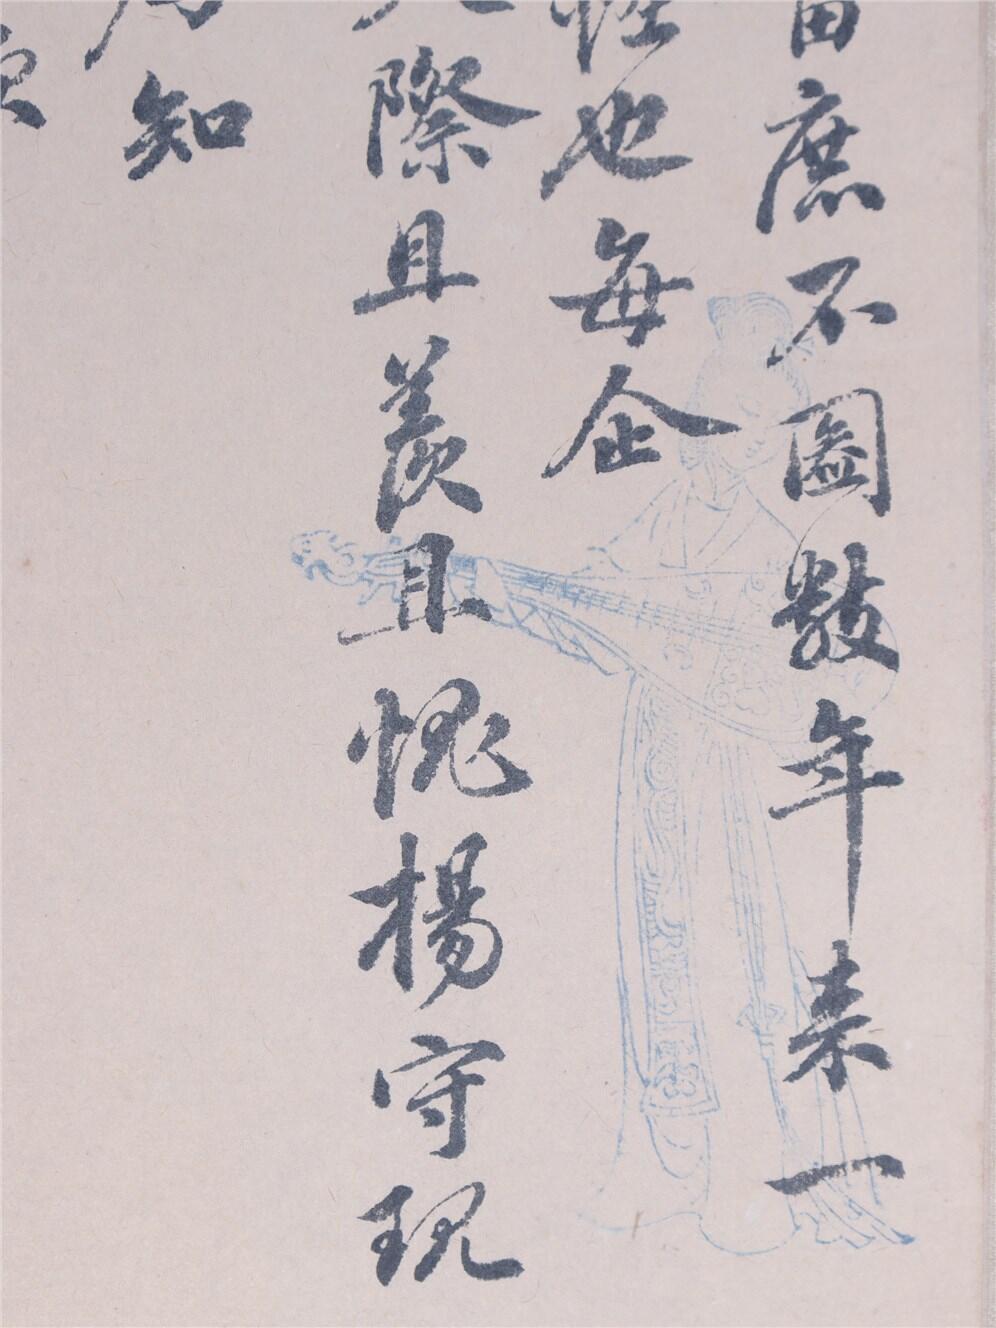 庶不圖數年來一
怪也每企
際且羨且愧楊守現
知